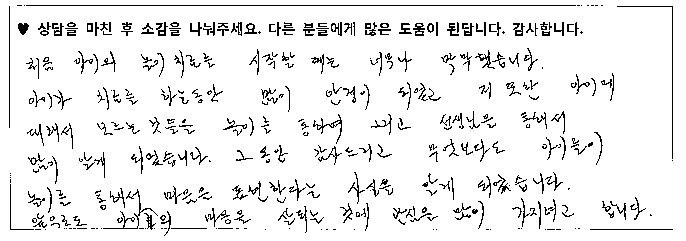 ♥ 상담을 마친 후 소감을 나눠주세요. 다른 분들에게 많은 도움이 된답니다. 감사합니다.
처음 아이와 놀이치료를 시작할 때는 너무나 막막했습니다.
아이가 치료를 하는동안 많이 안정이 되었고 저 또한 아이에
대해서 모르는 것들을 놀이를 통하여 그리고 선생님을 통해서
많이 알게 되었습니다. 그동안 감사드리고 무엇보다도 아이들이
놀이를 통해서 마음을 표현한다는 사실을 알게 되었습니다.
앞으로도 아이들의 마음을 살피는 것에 관심을 많이 가지려고 합니다.